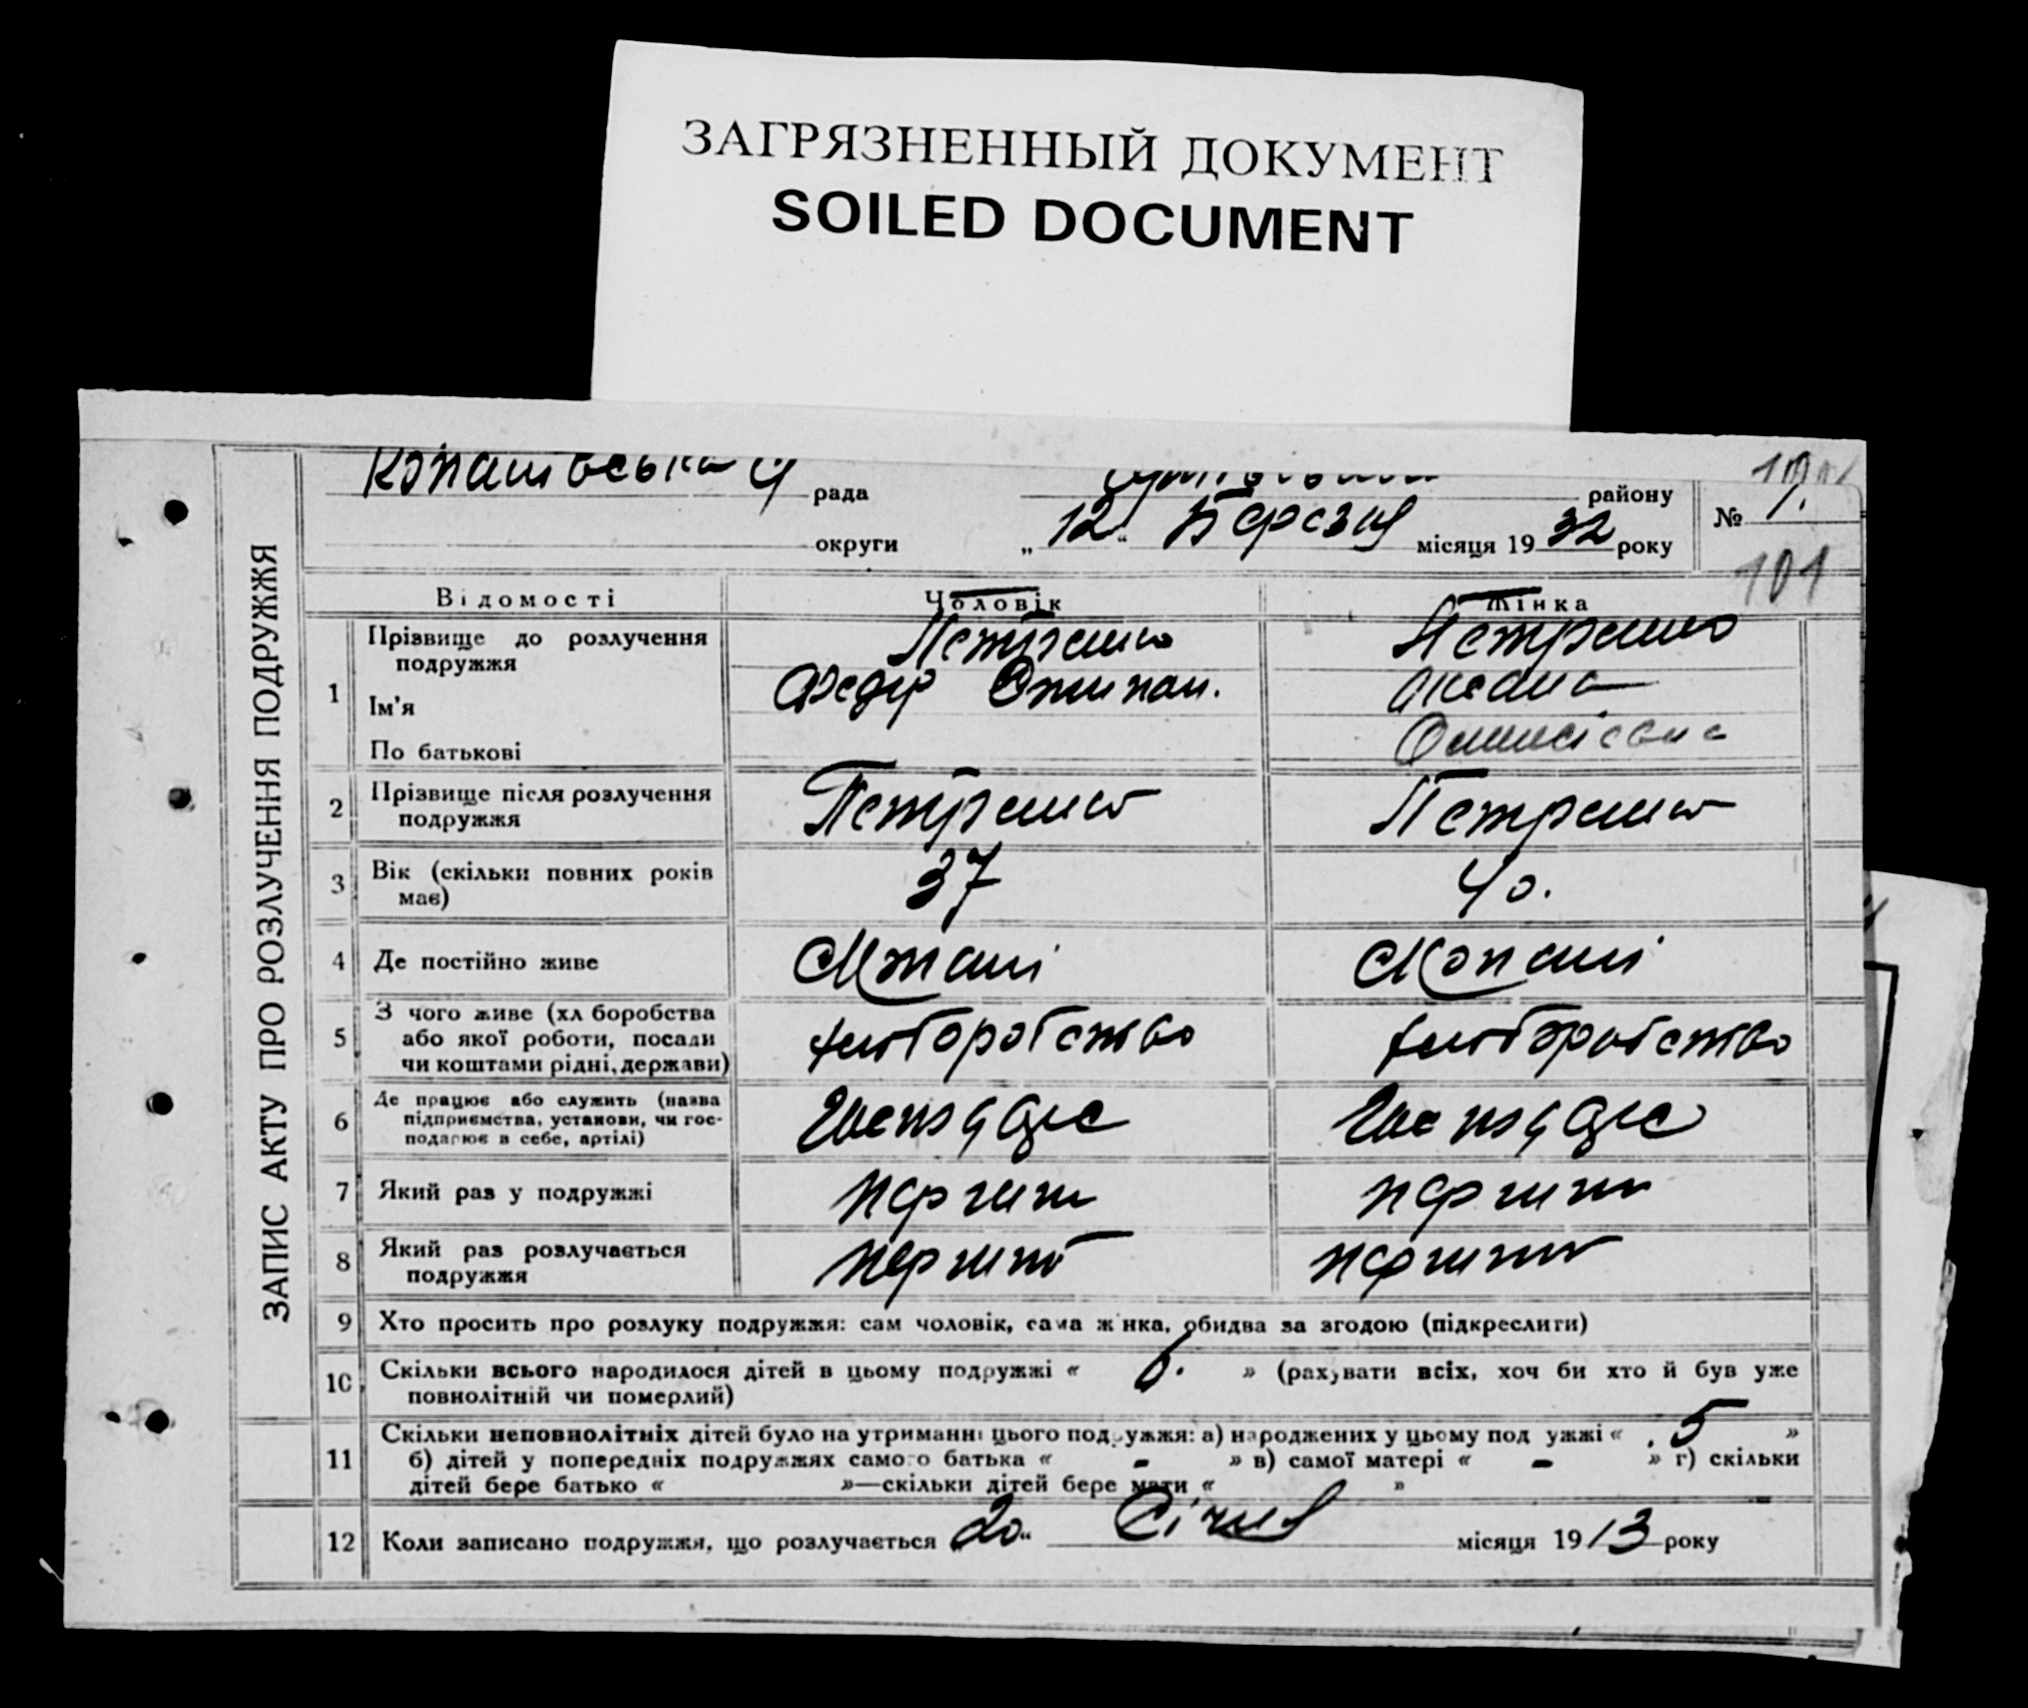 ЗАГРЯЗНЕННЫЙ ДОКУМЕНТ
SOILED DOCUMENT
ЗАПИС АКТУ ПРО РОЗЛУЧЕННЯ ПОДРУЖЖЯ
Копанівська рада району
округи „12“ Березня місяця 1932 року №
101
Відомості Чоловік Жінка
1 Прізвище до розлучення
подружжя
Ім'я Федір Степан. Оксана
По батькові
2 Прізвище після розлучення
подружжя
3 Вік (скільки повних років 37 40.
має)
4 Де постійно живе с Копані с Копані
5 З чого живе (хл боробства
або якої роботи, посади хлiборобство хлiборобство
чи коштами рідні, держави)
6 Де працює або служить (назва
підприємства, установи, чи гос-
подарює в себе, артілі)
7 Який раз у подружжі перший перший
8 Який раз розлучається перший перший
подружжя
9 Хто просить про розлуку подружжя: сам чоловік, сама ж нка, обидва за згодою (підкреслити)
10 Скільки всього народилося дітей в цьому подружжі « 6. » (рахувати всіх, хоч би хто й був уже
повнолітній чи померлий)
11 Скільки неповнолітніх дітей було на утриманні цього подружжя: а) народжених у цьому под ужжі « 5 »
б) дітей у попередніх подружжях самого батька « - » в) самої матері « - » г) скільки
дітей бере батько « »—скільки дітей бере мати « »
12 Коли записано подружжя, що розлучається „20“ Січня місяця 1913 року